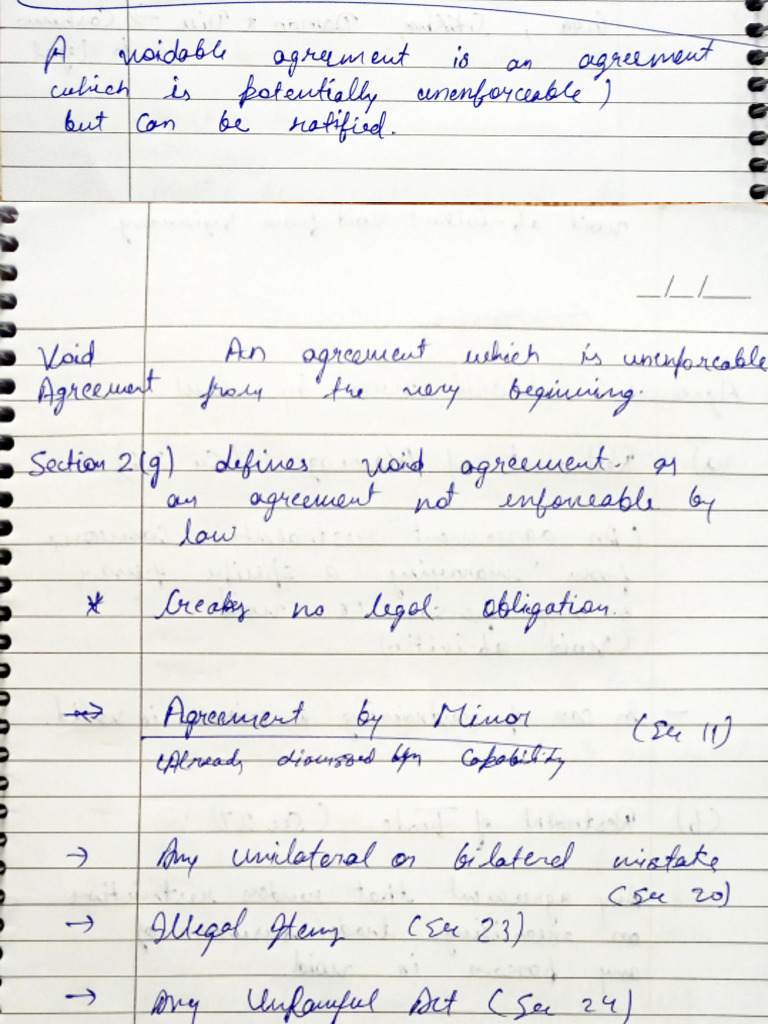 A voidable agreement is an agreement
which is potentially unenforceable)
but can be ratified.
__/__/____
Void An agreement which is unenforceable
Agreement from the very beginning.
Section 2(g) defines void agreement. as
an agreement not enforceable by
law
* Creates no legal obligation.
→ Agreement by Minor (Sec 11)
(Already discussed Capability
→ Any Unilateral or bilateral mistake
(Sec 20)
→ Illegal (Sec 23)
→ Any Unlawful Act (Sec 24)